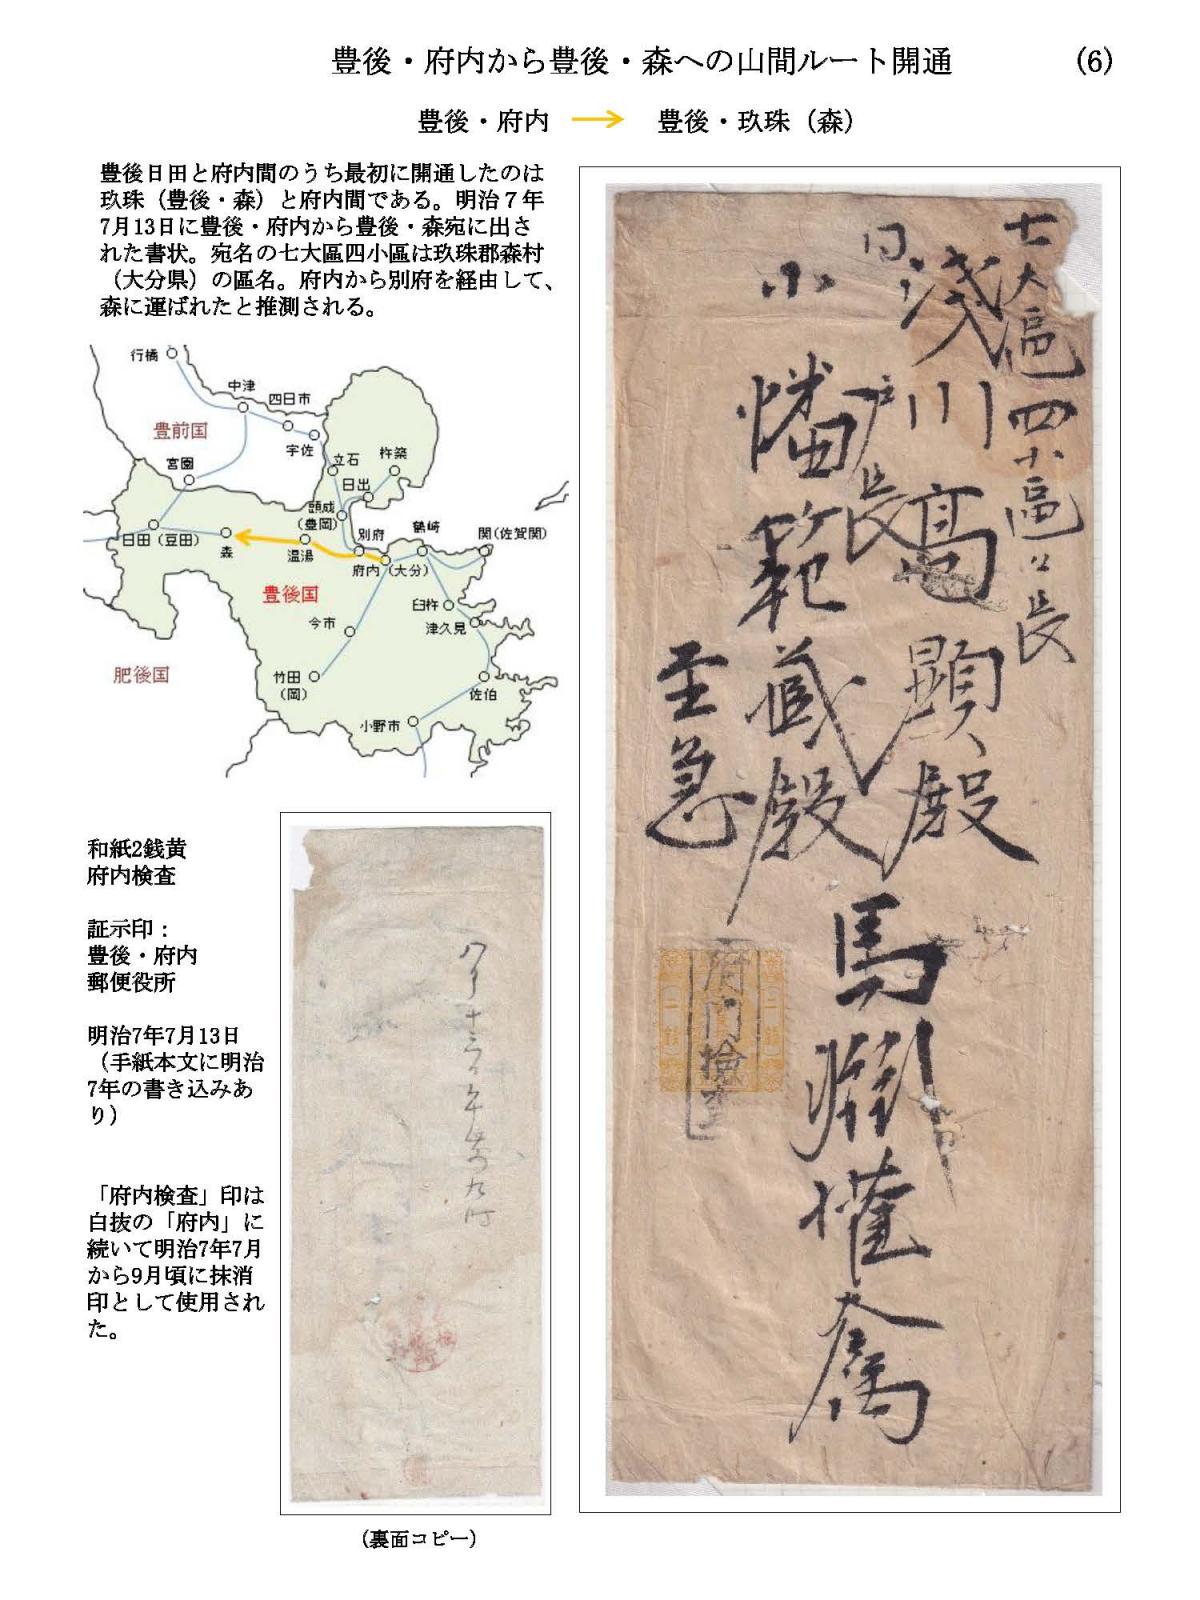 豊後・府内から豊後・森への山間ルート開通
(6)
豊後・府内
豊後・玖珠（森）
豊後日田と府内間のうち最初に開通したのは
玖珠（豊後・森）と府内間である。明治７年
7月13日に豊後・府内から豊後・森宛に出さ
れた書状。宛名の七大區四小區は玖珠郡森村
（大分県）の區名。府内から別府を経由して、
森に運ばれたと推測される。
行橋
中津
四日市
宇佐
豊前国
宮園
立石
杵築
日出
頭成
（豊岡）
別府
鶴崎
関(佐賀関)
日田（豆田）
森
温湯
府内（大分）
豊後国
臼杵
津久見
今市
竹田
（岡）
佐伯
小野市
肥後国
七大區四小區
長
淺川高顕殿
同
戸長
小幡範蔵殿
至急
馬
府内検査
和紙2銭黄
府内検査
証示印：
豊後・府内
郵便役所
明治7年7月13日
（手紙本文に明治
7年の書き込みあ
り）
「府内検査」印は
白抜の「府内」に
続いて明治7年7月
から9月頃に抹消
印として使用され
た。
（裏面コピー）